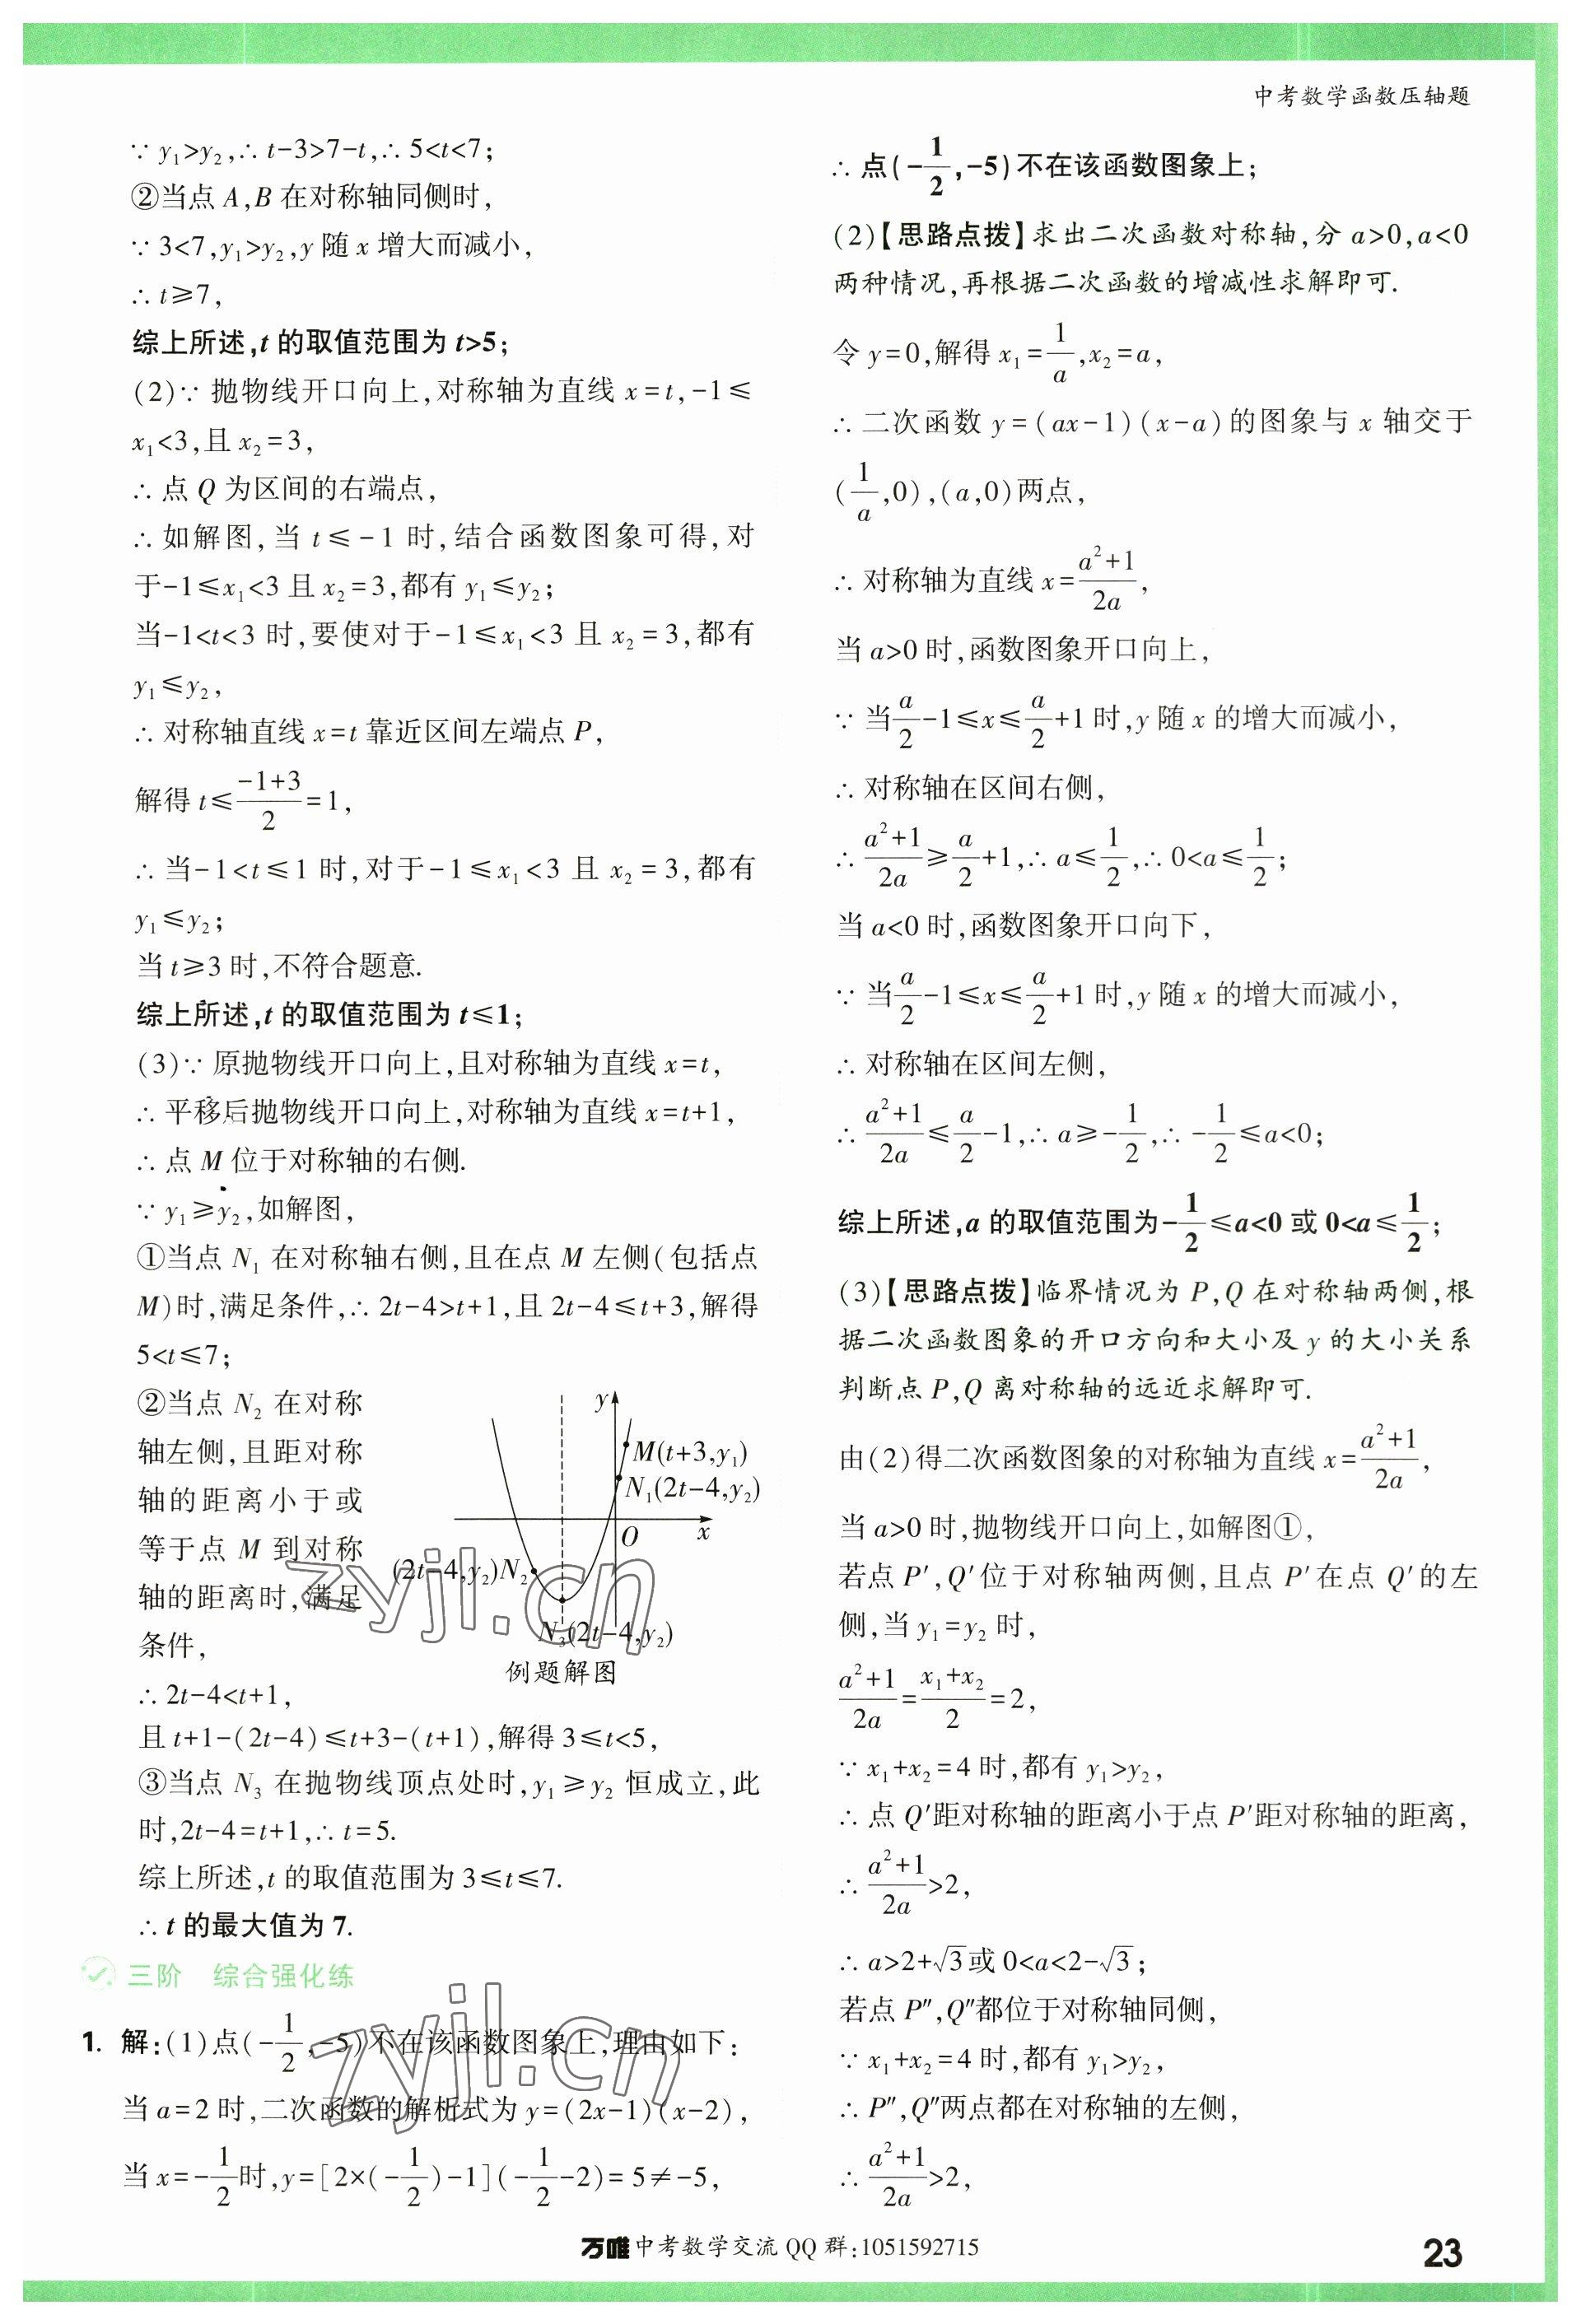 中考数学函数压轴题
∵ y₁>y₂,∴ t-3>7-t,∴ 5<t<7;
②当点 A,B 在对称轴同侧时,
∵ 3<7,y₁>y₂,y 随 x 增大而减小,
∴ t≥7,
综上所述,t 的取值范围为 t>5;
(2)∵ 抛物线开口向上,对称轴为直线 x=t,-1≤
x₁<3,且 x₂=3,
∴ 点 Q 为区间的右端点,
∴ 如解图,当 t≤-1 时,结合函数图象可得,对
于-1≤x₁<3 且 x₂=3,都有 y₁≤y₂;
当-1<t<3 时,要使对于-1≤x₁<3 且 x₂=3,都有
y₁≤y₂,
∴ 对称轴直线 x=t 靠近区间左端点 P,
解得 t≤(-1+3)/2=1,
∴ 当-1<t≤1 时,对于-1≤x₁<3 且 x₂=3,都有
y₁≤y₂;
当 t≥3 时,不符合题意.
综上所述,t 的取值范围为 t≤1;
(3)∵ 原抛物线开口向上,且对称轴为直线 x=t,
∴ 平移后抛物线开口向上,对称轴为直线 x=t+1,
∴ 点 M 位于对称轴的右侧.
∵ y₁≥y₂,如解图,
①当点 N₁ 在对称轴右侧,且在点 M 左侧(包括点
M)时,满足条件,∴ 2t-4>t+1,且 2t-4≤t+3,解得
5<t≤7;
②当点 N₂ 在对称
轴左侧,且距对称
轴的距离小于或
等于点 M 到对称
轴的距离时,满足
条件,
y
M(t+3,y₁)
N₁(2t-4,y₂)
O
x
(2t-4,y₂)N₂
N₃(2t-4,y₂)
例题解图
∴ 2t-4<t+1,
且 t+1-(2t-4)≤t+3-(t+1),解得 3≤t<5,
③当点 N₃ 在抛物线顶点处时,y₁≥y₂ 恒成立,此
时,2t-4=t+1,∴ t=5.
综上所述,t 的取值范围为 3≤t≤7.
∴ t 的最大值为 7.
三阶 综合强化练
1. 解:(1)点(-1/2,-5)不在该函数图象上,理由如下:
当 a=2 时,二次函数的解析式为 y=(2x-1)(x-2),
当 x=-1/2时,y=[2×(-1/2)-1](-1/2-2)=5≠-5,
∴ 点(-1/2,-5)不在该函数图象上;
(2)【思路点拨】求出二次函数对称轴,分 a>0,a<0
两种情况,再根据二次函数的增减性求解即可.
令 y=0,解得 x₁=1/a,x₂=a,
∴ 二次函数 y=(ax-1)(x-a)的图象与 x 轴交于
(1/a,0),(a,0)两点,
∴ 对称轴为直线 x=(a²+1)/2a,
当 a>0 时,函数图象开口向上,
∵ 当a/2-1≤x≤a/2+1 时,y 随 x 的增大而减小,
∴ 对称轴在区间右侧,
∴ (a²+1)/2a≥a/2+1,∴ a≤1/2,∴ 0<a≤1/2;
当 a<0 时,函数图象开口向下,
∵ 当a/2-1≤x≤a/2+1 时,y 随 x 的增大而减小,
∴ 对称轴在区间左侧,
∴ (a²+1)/2a≤a/2-1,∴ a≥-1/2,∴ -1/2≤a<0;
综上所述,a 的取值范围为-1/2≤a<0 或 0<a≤1/2;
(3)【思路点拨】临界情况为 P,Q 在对称轴两侧,根
据二次函数图象的开口方向和大小及 y 的大小关系
判断点 P,Q 离对称轴的远近求解即可.
由(2)得二次函数图象的对称轴为直线 x=(a²+1)/2a,
当 a>0 时,抛物线开口向上,如解图①,
若点 P′,Q′位于对称轴两侧,且点 P′在点 Q′的左
侧,当 y₁=y₂ 时,
(a²+1)/2a=(x₁+x₂)/2=2,
∵ x₁+x₂=4 时,都有 y₁>y₂,
∴ 点 Q′距对称轴的距离小于点 P′距对称轴的距离,
∴ (a²+1)/2a>2,
∴ a>2+√3或 0<a<2-√3;
若点 P″,Q″都位于对称轴同侧,
∵ x₁+x₂=4 时,都有 y₁>y₂,
∴ P″,Q″两点都在对称轴的左侧,
∴ (a²+1)/2a>2,
zyjl.cn
zyjl.cn
万唯中考数学交流 QQ 群:1051592715
23